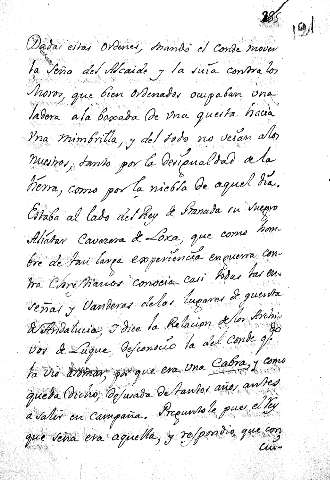 191
Dadas estas ordenes, mandó el conde mover
la seña del Alcaide y la suia contra los
Moros, que bien ordenados ocupaban una
ladera a la baxada de una questa hacia
una mimbrilla, y del todo no veían a los
nuestros, tanto por la desigualdad de la
tierra, como por la niebla de aquel dia.
Estaba al lado del Rey de Granada su suegro
Aliatar de Loxa, que como hom-
bre de tan larga experiencia en guerra con-
tra Christianos conocia casi todas las en-
señas y Vanderas de los lugares de questa
de Andalucia, y dice la Relacion de los Archi-
vos de Luque desconocio la del conde q.do
la vio por que era una Cabra, y como
queda dicho, desusada de tantos años antes
a salir en campaña. Preguntole pues el Rey
que seña era aquella, y respondio, que con